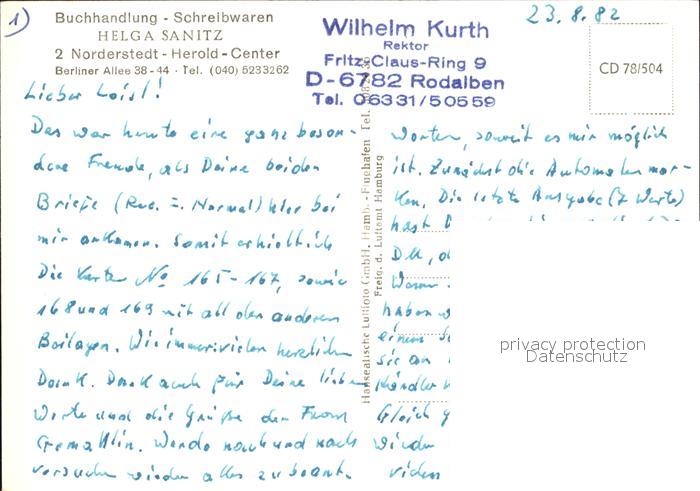 1)
Buchhandlung - Schreibwaren
HELGA SANITZ
2 Norderstedt - Herold-Center
Berliner Allee 38-44 · Tel. (040) 5233262
Wilhelm Kurth
Rektor
Fritz-Claus-Ring 9
D-6782 Rodalben
Tel. 06331/50559
23.8.82
CD 78/504
Lieber Loisl!
Das war heute eine ganz beson-
dere Freude, als Deine beiden
Briefe (Rec. u. Normal) hier bei
mir ankamen. Somit erhielt ich
Die Karten No 165-167, sowie
168 und 169 mit all den anderen
Beilagen. Wie immer vielen herzlichen
Dank. Dank auch für Deine lieben
Worte und die Grüße der Frau
Gemahlin. Werde nach und nach
versuchen wieder alles zu beant-
Hanseatische Luftfoto GmbH, Hamb.-Flughafen Tel.
Freig. d. Luftamt Hamburg
worten, soweit es mir möglich
ist. Zunächst die Automatenmar-
ken. Die letzte Ausgabe (7 Werte)
hast
DM, d
Waren
haben w
einen
sie an
Händler
Gleich
wieder
vielen
privacy protection
Datenschutz